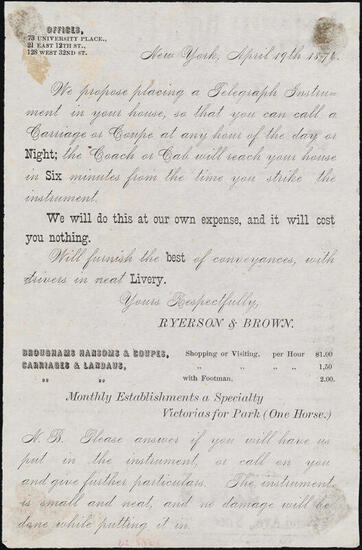 OFFICES,
73 UNIVERSITY PLACE,
21 EAST 12TH ST.,
128 WEST 32ND ST.
New York, April 19th 1876.
We propose placing a Telegraph Instru-
ment in your house, so that you can call a
Carriage or Coupe at any hour of the day or
Night; the Coach or Cab will reach your house
in Six minutes from the time you strike the
instrument.
We will do this at our own expense, and it will cost
you nothing.
Will furnish the best of conveyances, with
drivers in neat Livery.
Yours Respectfully,
RYERSON & BROWN.
BROUGHAMS HANSOMS & COUPES, Shopping or Visiting, per Hour $1.00
CARRIAGES & LANDAUS, " " " 1,50
" " with Footman. 2.00
Monthly Establishments a Specialty
Victorias for Park (One Horse.)
N. B. Please answer if you will have us
put in the instrument, or call on you
and give further particulars. The instrument
is small and neat, and no damage will be
done while putting it in.